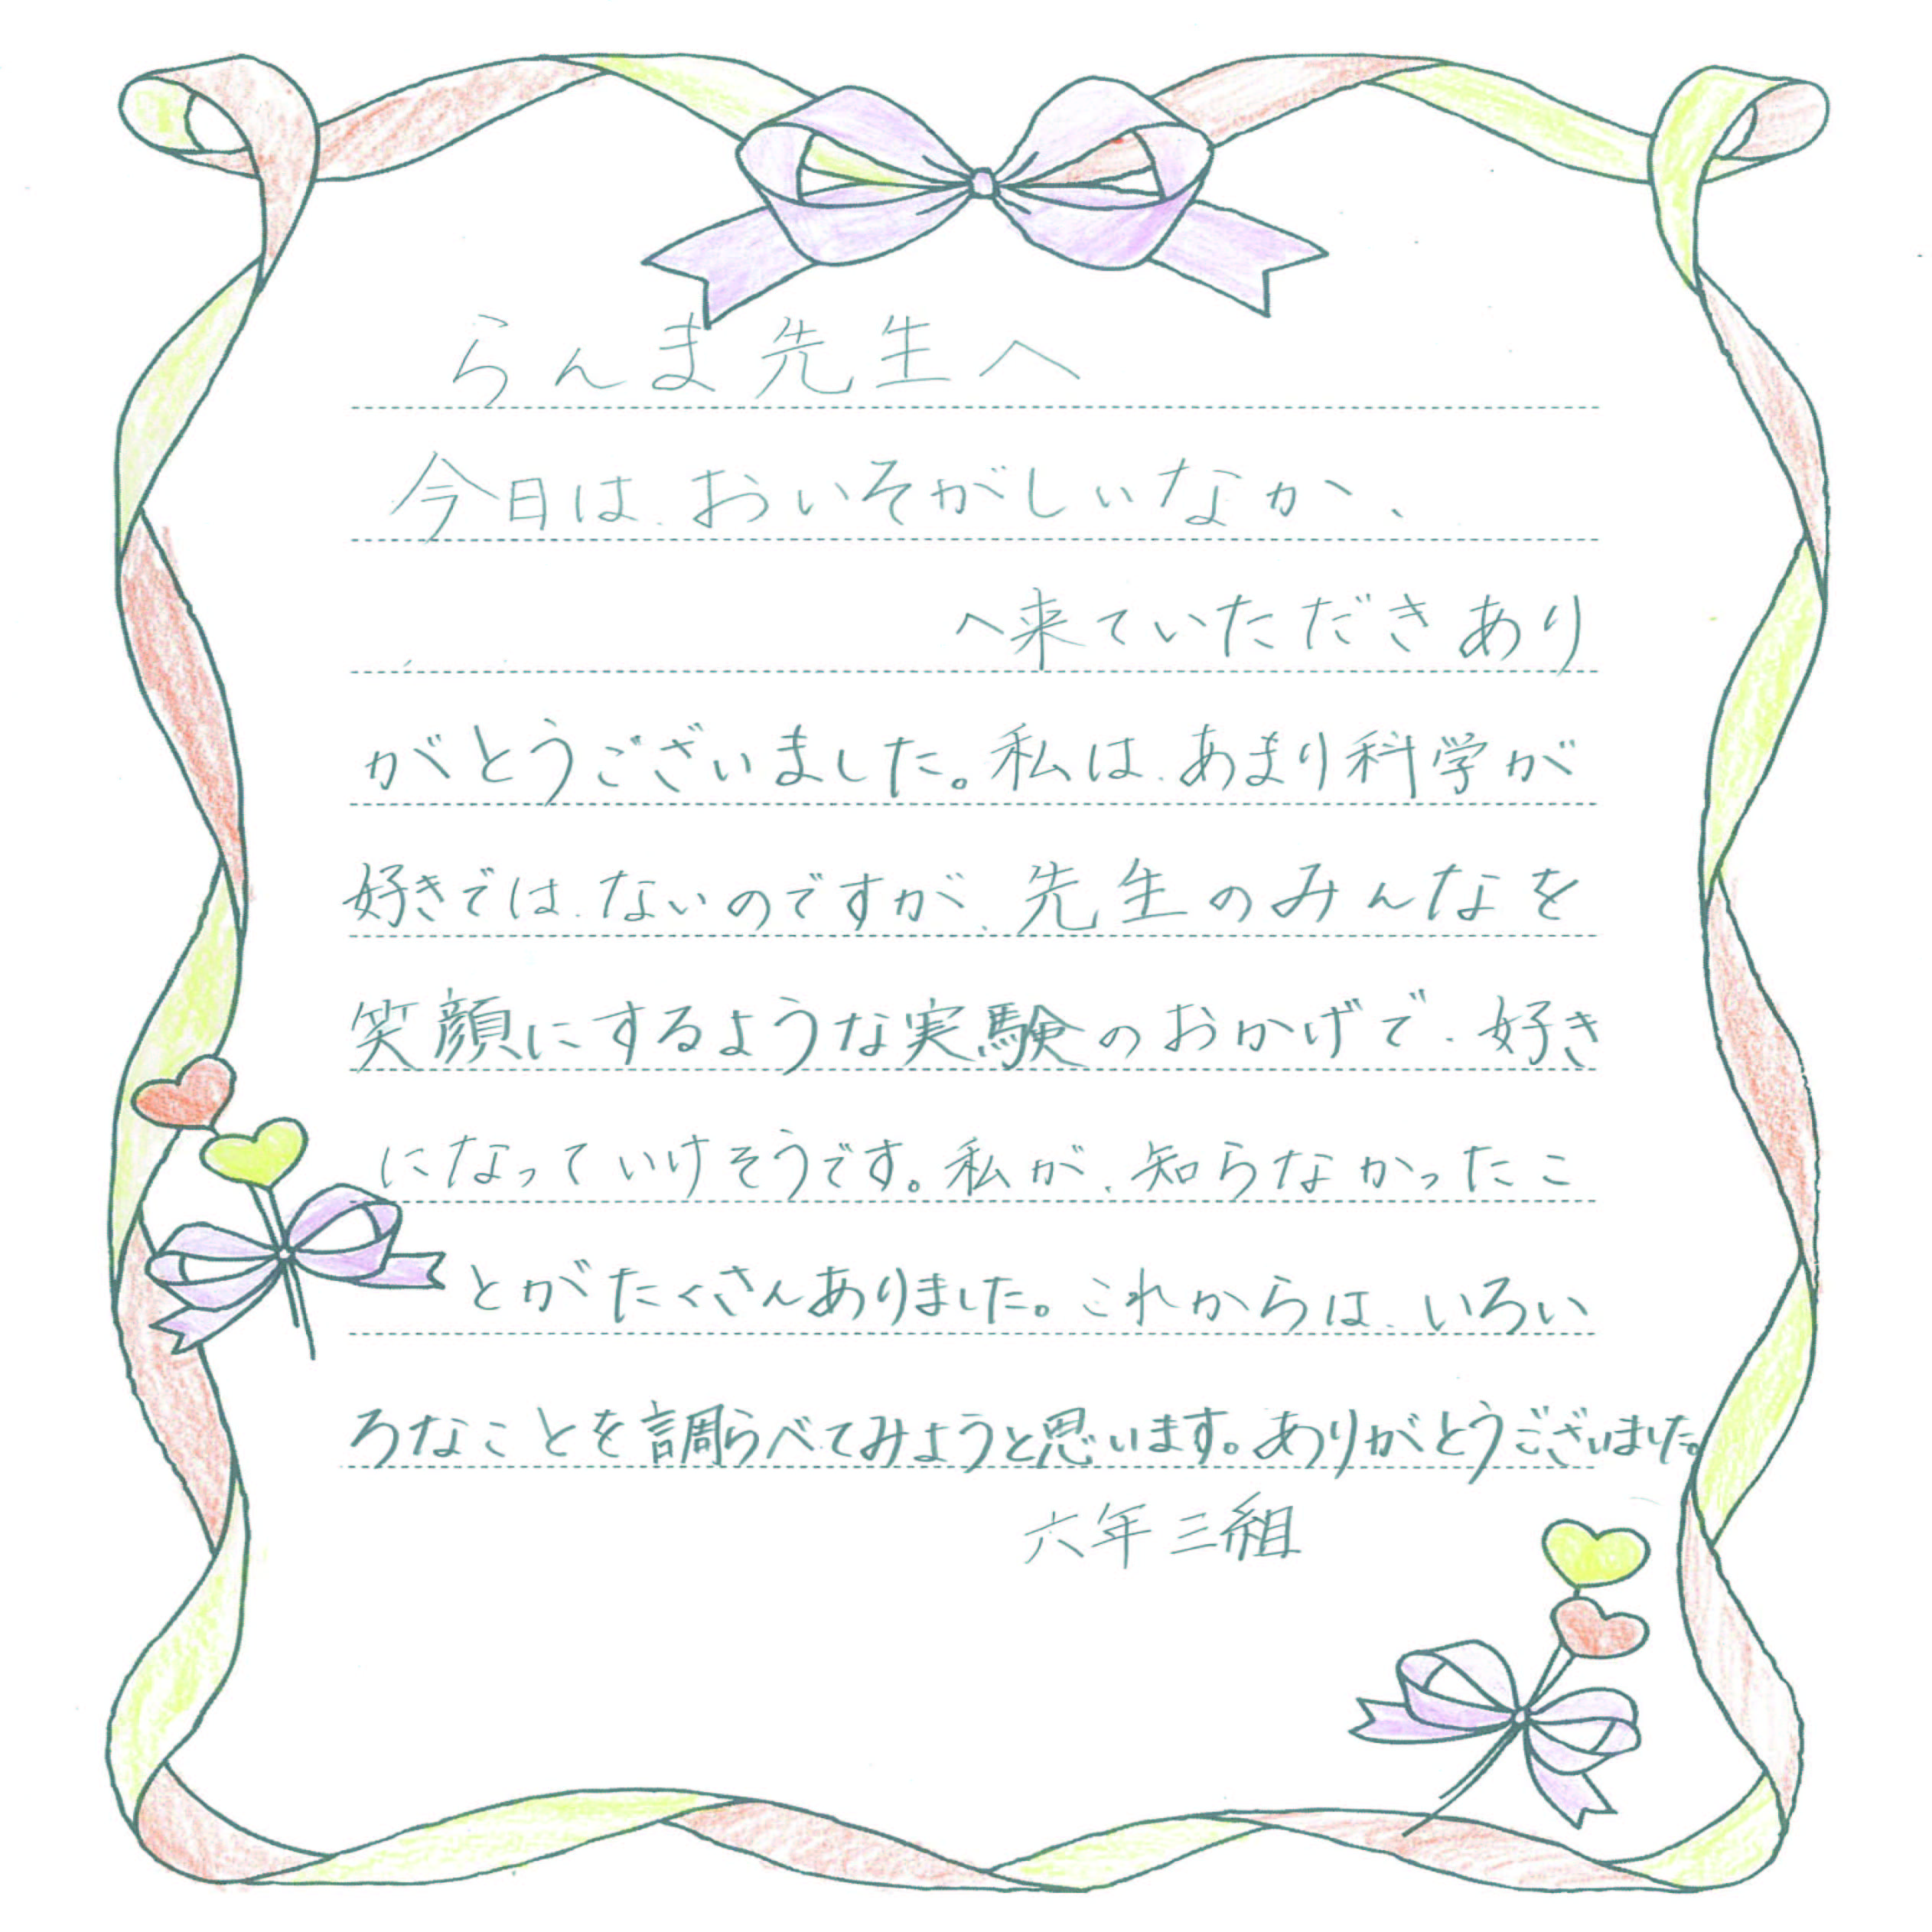 らんま先生へ
今日は、おいそがしいなか、
へ来ていただきあり
がとうございました。私は、あまり科学が
好きでは、ないのですが、先生のみんなを
笑顔にするような実験のおかげで、好き
になっていけそうです。私が、知らなかったこ
とがたくさんありました。これからは、いろい
ろなことを調らべてみようと思います。ありがとうございました。
六年三組